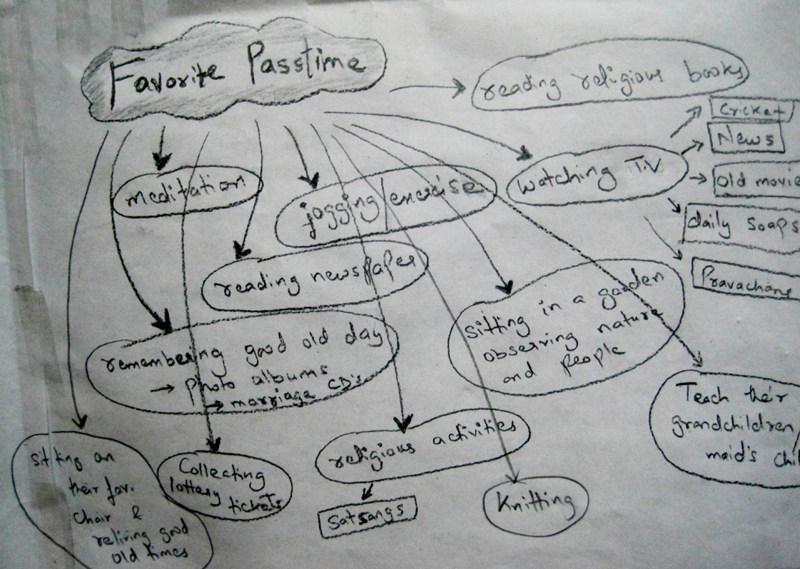 Favorite Passtime
reading religious books
Cricket
News
old movie
daily soaps
Pravachans
watching T.V
meditation
jogging/exercise
reading newspaper
sitting in a garden
observing nature
and people
remembering good old day
→ photo albums
→ marriage CD's
Teach their
grandchildren/
maid's chil
religious activities
Satsangs
Knitting
Collecting
lottery
tickets
sitting on
their fav.
chair &
reliving good
old times